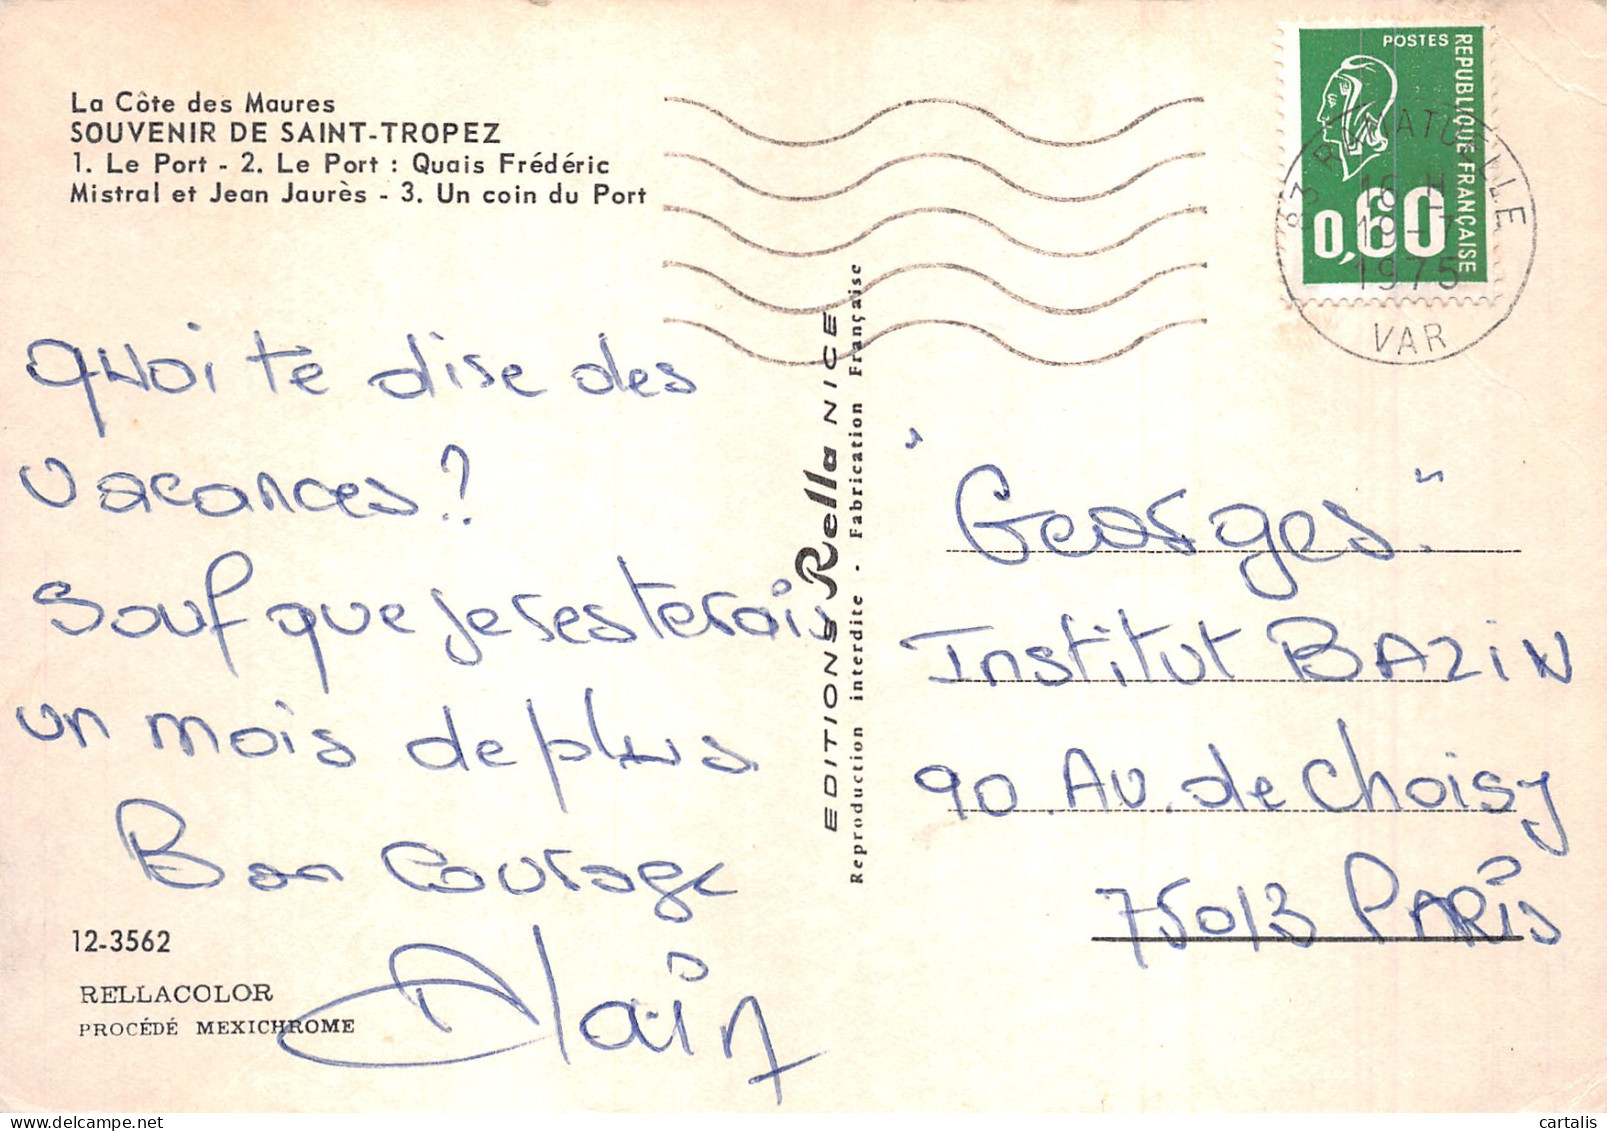 La Côte des Maures
SOUVENIR DE SAINT-TROPEZ
1. Le Port - 2. Le Port : Quais Frédéric
Mistral et Jean Jaurès - 3. Un coin du Port
POSTES
REPUBLIQUE FRANÇAISE
0,60
83 RAMATUELLE
16 H
19-7
1975
VAR
Quoi te dise des
vacances?
Souf que je resterois
un mois de plus
Bon Courage
Alain
12-3562
RELLACOLOR
PROCÉDÉ MEXICHROME
EDITIONS Rella NICE
Reproduction interdite - Fabrication Française
"Georges"
Institut BAZIN
90 Av. de Choisy
75013 PARIS
cartalis
delcampe.net